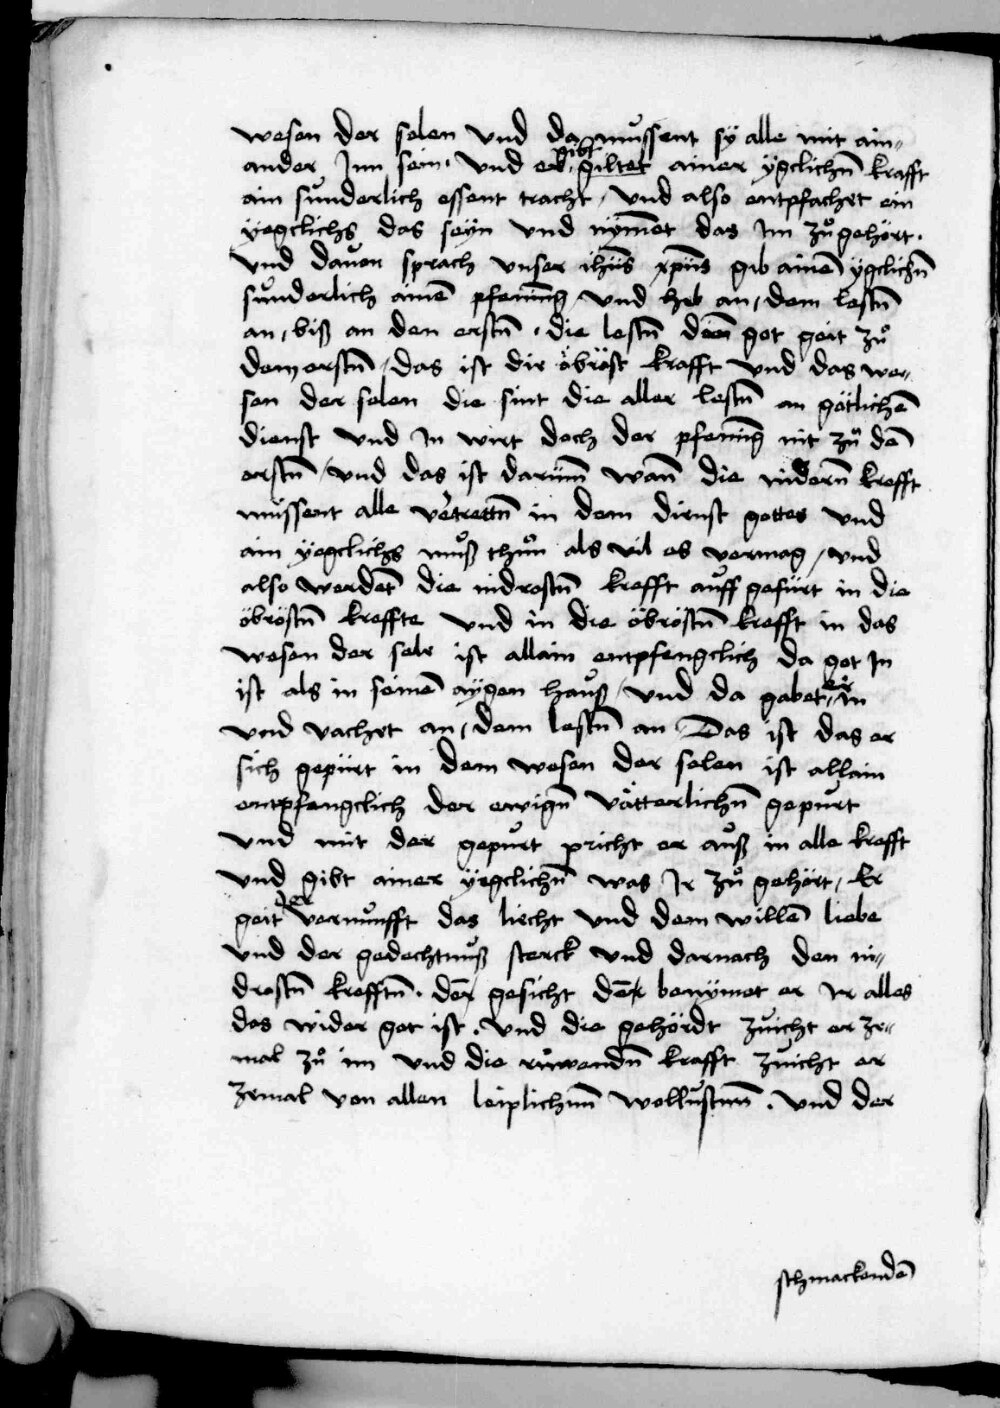 wesen der selen vnd da můssent sÿ alle mit ain„
ander Jnn sein · vnd er gibt giltet ainer ÿgclichn̄ krafft
ain sunderlich essent tracht / vnd also entpfachet ein
yegclichs das seyn vnd nÿmet das Jm zů gehört ·
vnd dauon sprach vnser ih̄us xp̄us gib ainē ÿgclichn̄
sunderlich ainē pfening vnd heb an / dem lestn̄
an / biß an den erstn̄ · die lestn̄ den got geit zů
dem erstn̄ / das ist die öbröst krafft vnd das we„
sen der selen die sint die aller lestn̄ an götlichē
dienst vnd Jn wirt doch der pfening mit zů dē
erstn̄ / vnd das ist darum̄ wan̄ die nidern̄ krefft
mussent alle vertrettn̄ in dem dinst gottes vnd
ain yegclichs můß thůn als vil es vermag / vnd
also werdēt die nidrostn̄ krefft auff gefürt in die
öbröstn̄ kreffte vnd in die öbröstn̄ krefft in das
wesen der sele ist allain entpfengclich da got Jn
ist als in seinē aÿgen hauß / vnd da gabet er in
vnd vachet an / dem lestn̄ an / Das ist das er
sich gepürt in dem wesen der selen ist allain
entpfengclich der ewign̄ vätterlichn̄ gepurt
vnd mit der gepurt pricht er auß in alle krefft
vnd gibt ainer ÿegclichn̄ was Jr zů gehört / Er
geit der vernunfft das liecht vnd dem willē liebe
vnd der gedechtnuß sterck vnd darnach den ni„
drostn̄ krefftn̄ · der gesicht der benÿmet er Jr alles
das wider got ist · vnd die gehördt zuicht er ze„
mal zů im vnd die růwendn̄ krafft zuicht er
zemal von allen leiplichnn̄ wollustnn̄ · vnd der
schmackendē